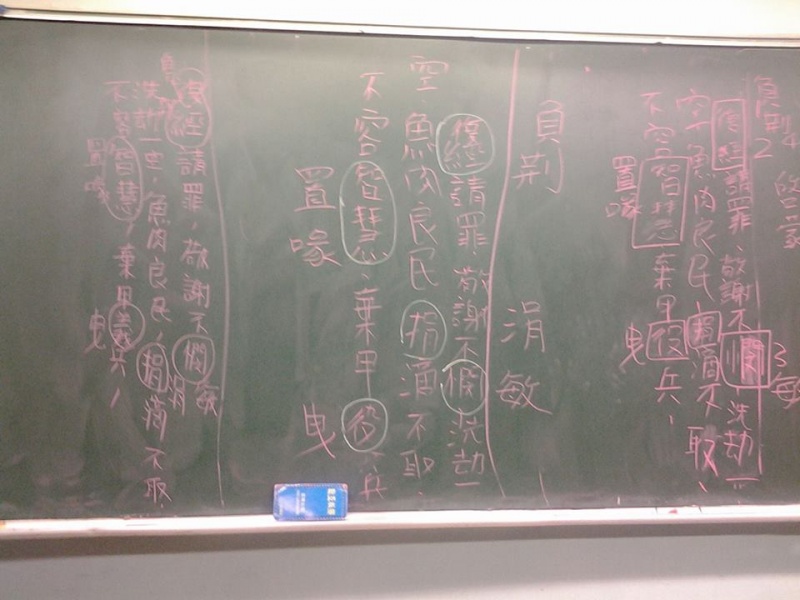 負荊 啓蒙 2 3 敏
請罪、敬謝不 洗劫一
空、魚肉良民、捐 滴不取、
不容智慧 棄甲役兵、
置喙 曳
負荊 涓敏
請罪、敬謝不 洗劫一
空、魚肉良民 捐 滴不取、
不容智慧、棄甲役兵
置喙 曳
請罪、敬謝不 敏
洗劫一空、魚肉良民、捐滴不取、
涓
不容智慧、棄甲 兵、
置喙 曳